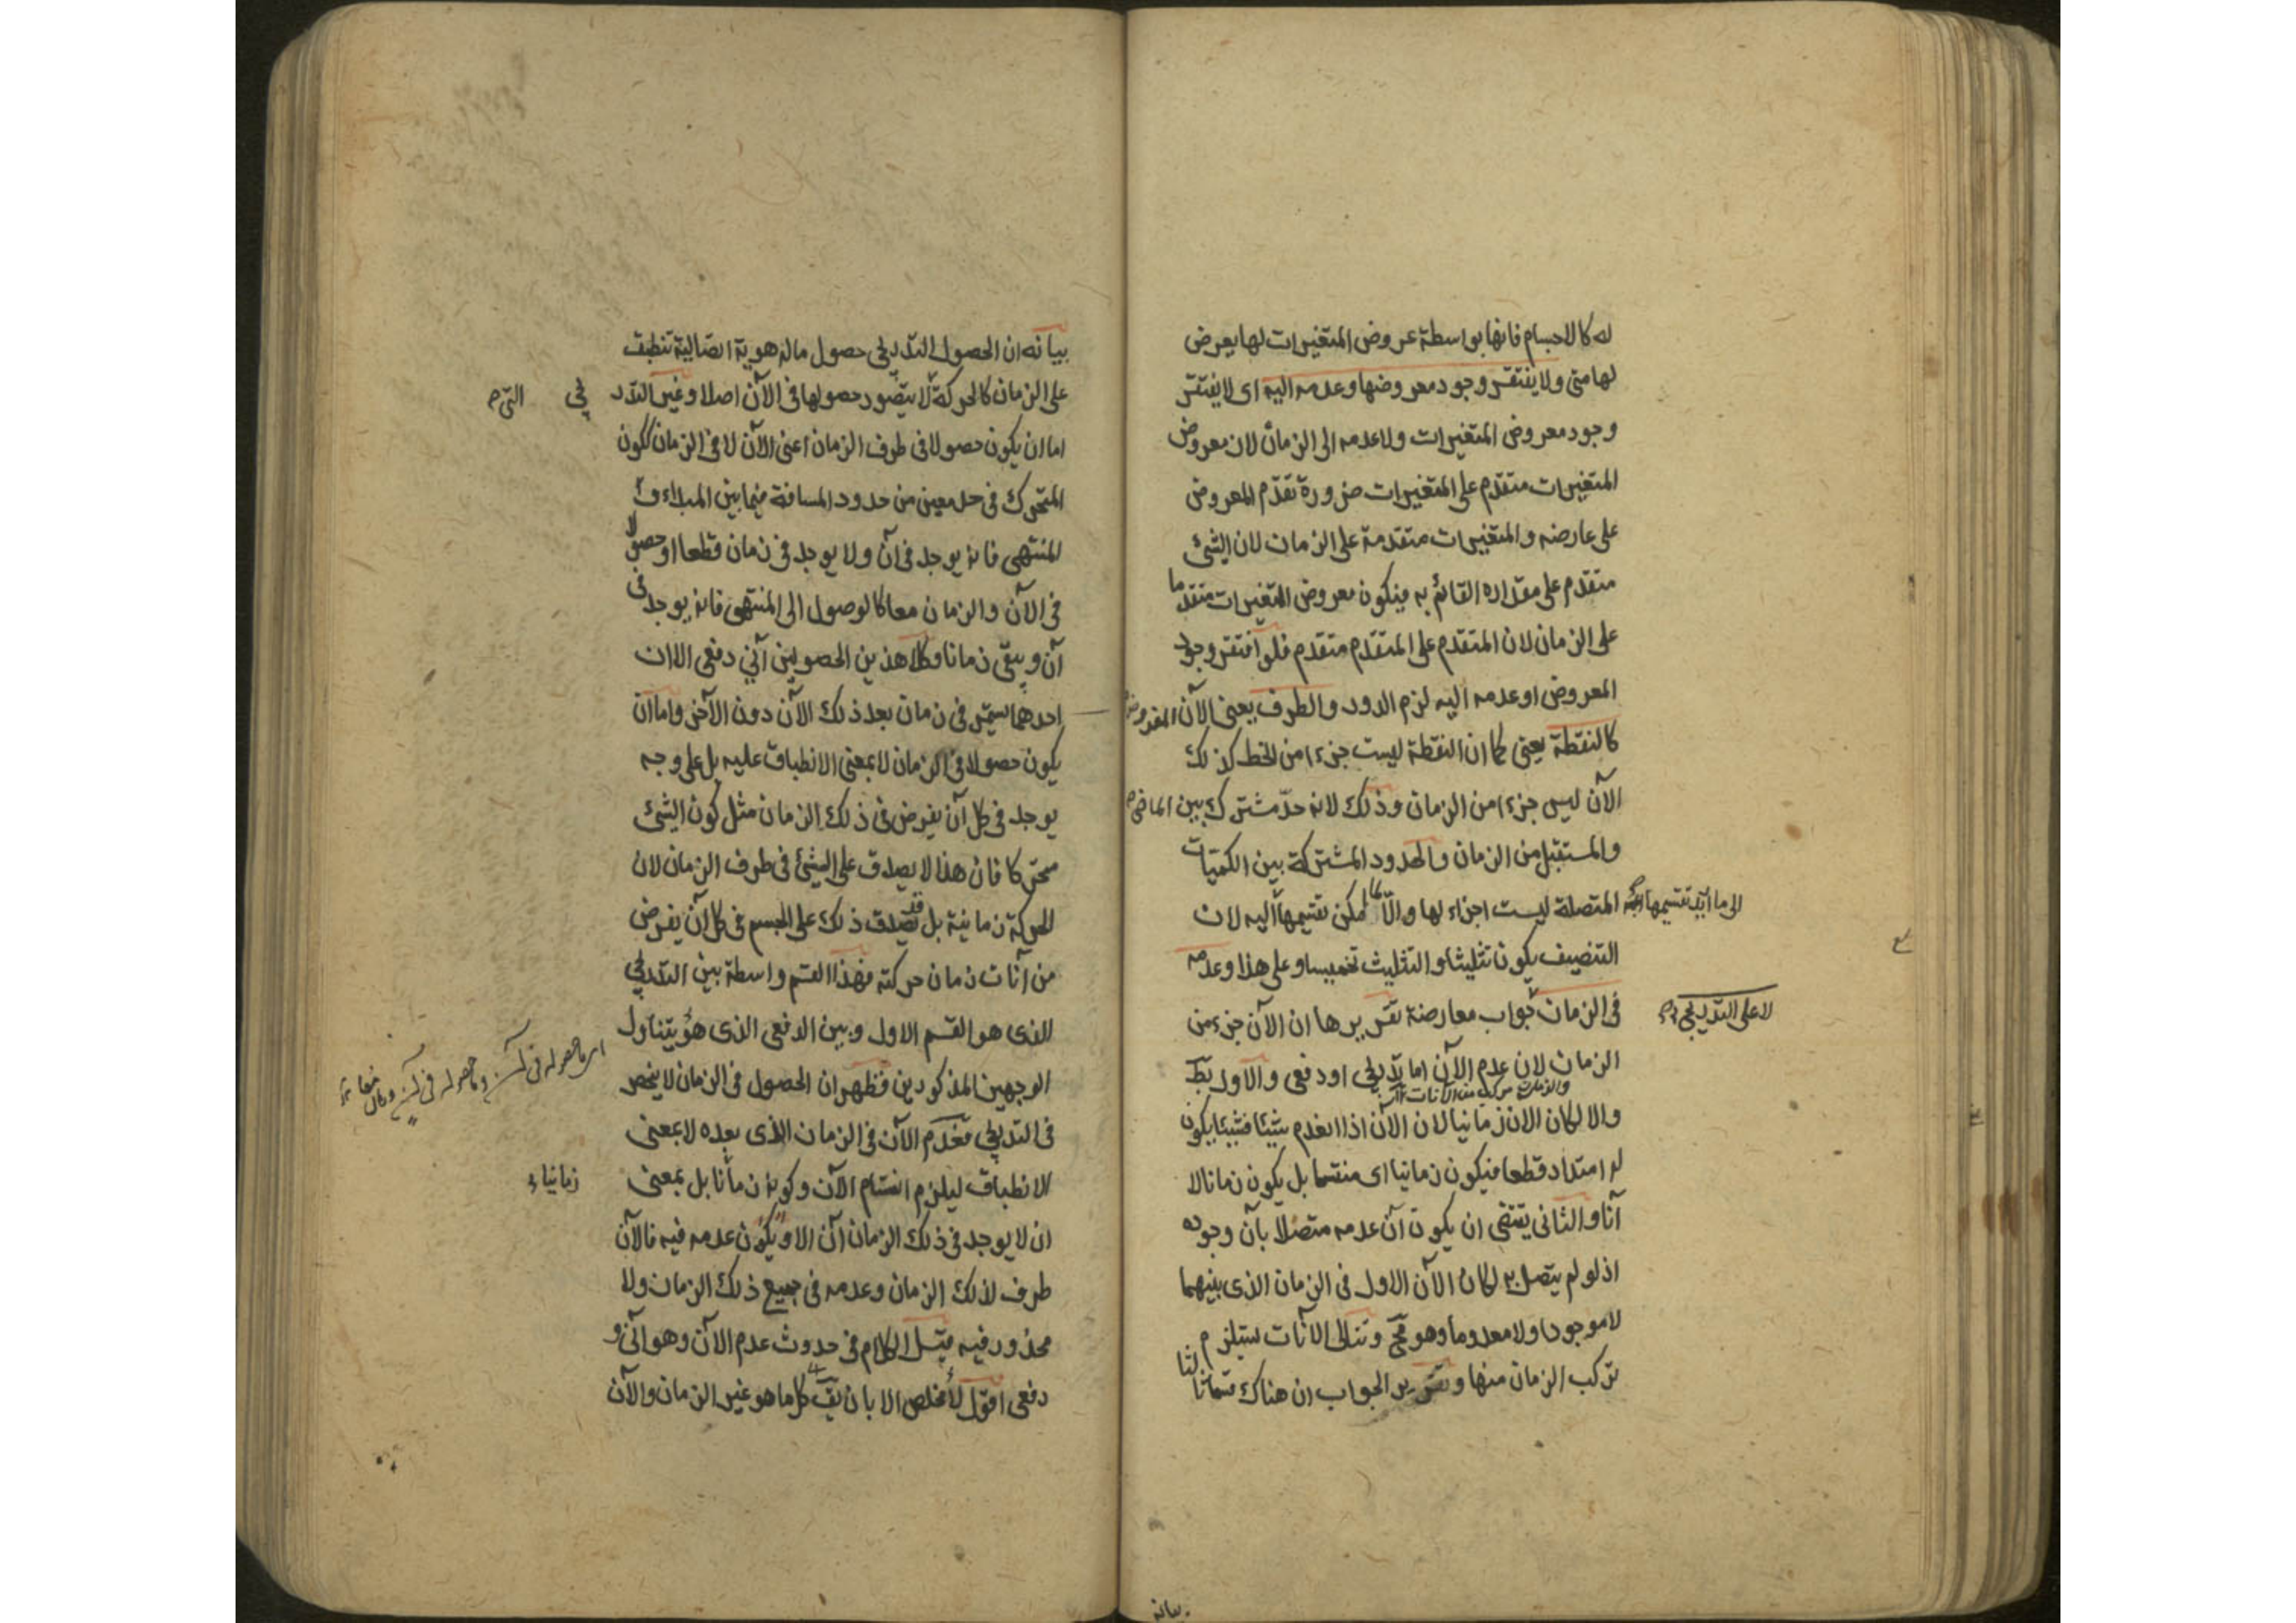 له كالاجسام فانها بواسطة عروض المتغيرات لها يعرض
لها متى ولا يفتقر وجود معروضها وعدمه اليه اى لا يفتقر
وجود معروض المتغيرات ولا عدمه الى الزمان لان معروض
المتغيرات متقدم على المتغيرات ضرورة تقدّم المعروض
على عارضه والمتغيرات متقدمة على الزمان لان الشئ
متقدم على مقداره القائم به فيكون معروض المتغيرات متقدما
على الزمان لان المتقدم على المتقدم متقدم فلو افتقر وجود
المعروض او عدمه اليه لزم الدور والطرف يعنى الآن المفروض
كالنقطة يعنى كما ان النقطة ليست جزءا من الخط كذلك
الآن ليس جزءا من الزمان وذلك لانه حدّ مشترك بين الماضى
والمستقبل من الزمان والحدود المشتركة بين الكميات
المتصلة ليست اجزاء لها والا لما امكن تقسيمها اليه لان
الى ما اريد تقسيمها
التنصيف يكون تثليثا والتثليث تخميسا وعلى هذا وعدمه
فى الزمان جواب معارضة تقريرها ان الآن جزء من
لا على التدريجى
الزمان لان عدم الآن اما تدريجى او دفعى والاول بط
والزمان مركب من الآنات
والا لكان الان زمانيا لان الآن اذا انعدم شيئا فشيئا يكون
له امتداد قطعا فيكون زمانيا اى منقسما بل يكون زمانا لا
آنا والثانى يقتضى ان يكون آن عدمه متصلا بآن وجوده
اذ لو لم يتصل به لكان الآن الاول فى الزمان الذى بينهما
لا موجودا ولا معدوما وهو مح وتتالى الآنات يستلزم
تركب الزمان منها وتقرير الجواب ان هناك قسما ثالثا
بيانه
بيانه ان الحصول التدريجى حصول ماله هوية اتصالية تنطبق
على الزمان كالحركة لا يتصور حصولها فى الآن اصلا وغير التدر
يجى
اما ان يكون حصولا فى طرف الزمان اعنى الآن لا فى الزمان ككون
المتحرك فى حد معين من حدود المسافة فيما بين المبداء و
المنتهى فانه يوجد فى آن ولا يوجد فى زمان قطعا او حصولا
فى الآن والزمان معا كالوصول الى المنتهى فانه يوجد فى
آن ويبقى زمانا وكلا هذين الحصولين آنى دفعى الا ان
احدهما يستمر فى زمان بعد ذلك الآن دون الآخر واما ان
يكون حصولا فى الزمان لا بمعنى الانطباق عليه بل على وجه
يوجد فى كل آن يفرض فى ذلك الزمان مثل كون الشئ
متحركا فان هذا لا يصدق على الشئ فى طرف الزمان لان
الحركة زمانية بل قد يصدق ذلك على الجسم فى كل آن يفرض
من آنات زمان حركته فهذا القسم واسطة بين التدريجى
الذى هو القسم الاول وبين الدفعى الذى هو يتناول
الوجهين المذكورين فظهر ان الحصول فى الزمان لا ينحصر
فى التدريجى فعدم الآن فى الزمان الذى بعده لا بمعنى
الانطباق ليلزم انقسام الآن وكونه زمانا بل بمعنى
زمانيا
ان لا يوجد فى ذلك الزمان آن الا ويكون عدمه فيه فالآن
طرف لذلك الزمان وعدمه فى جميع ذلك الزمان ولا
محذور فيه قيل الكلام فى حدوث عدم الآن وهو آنى و
دفعى اقول لا مخلص الا بان يق كل ما هو غير الزمان والآن